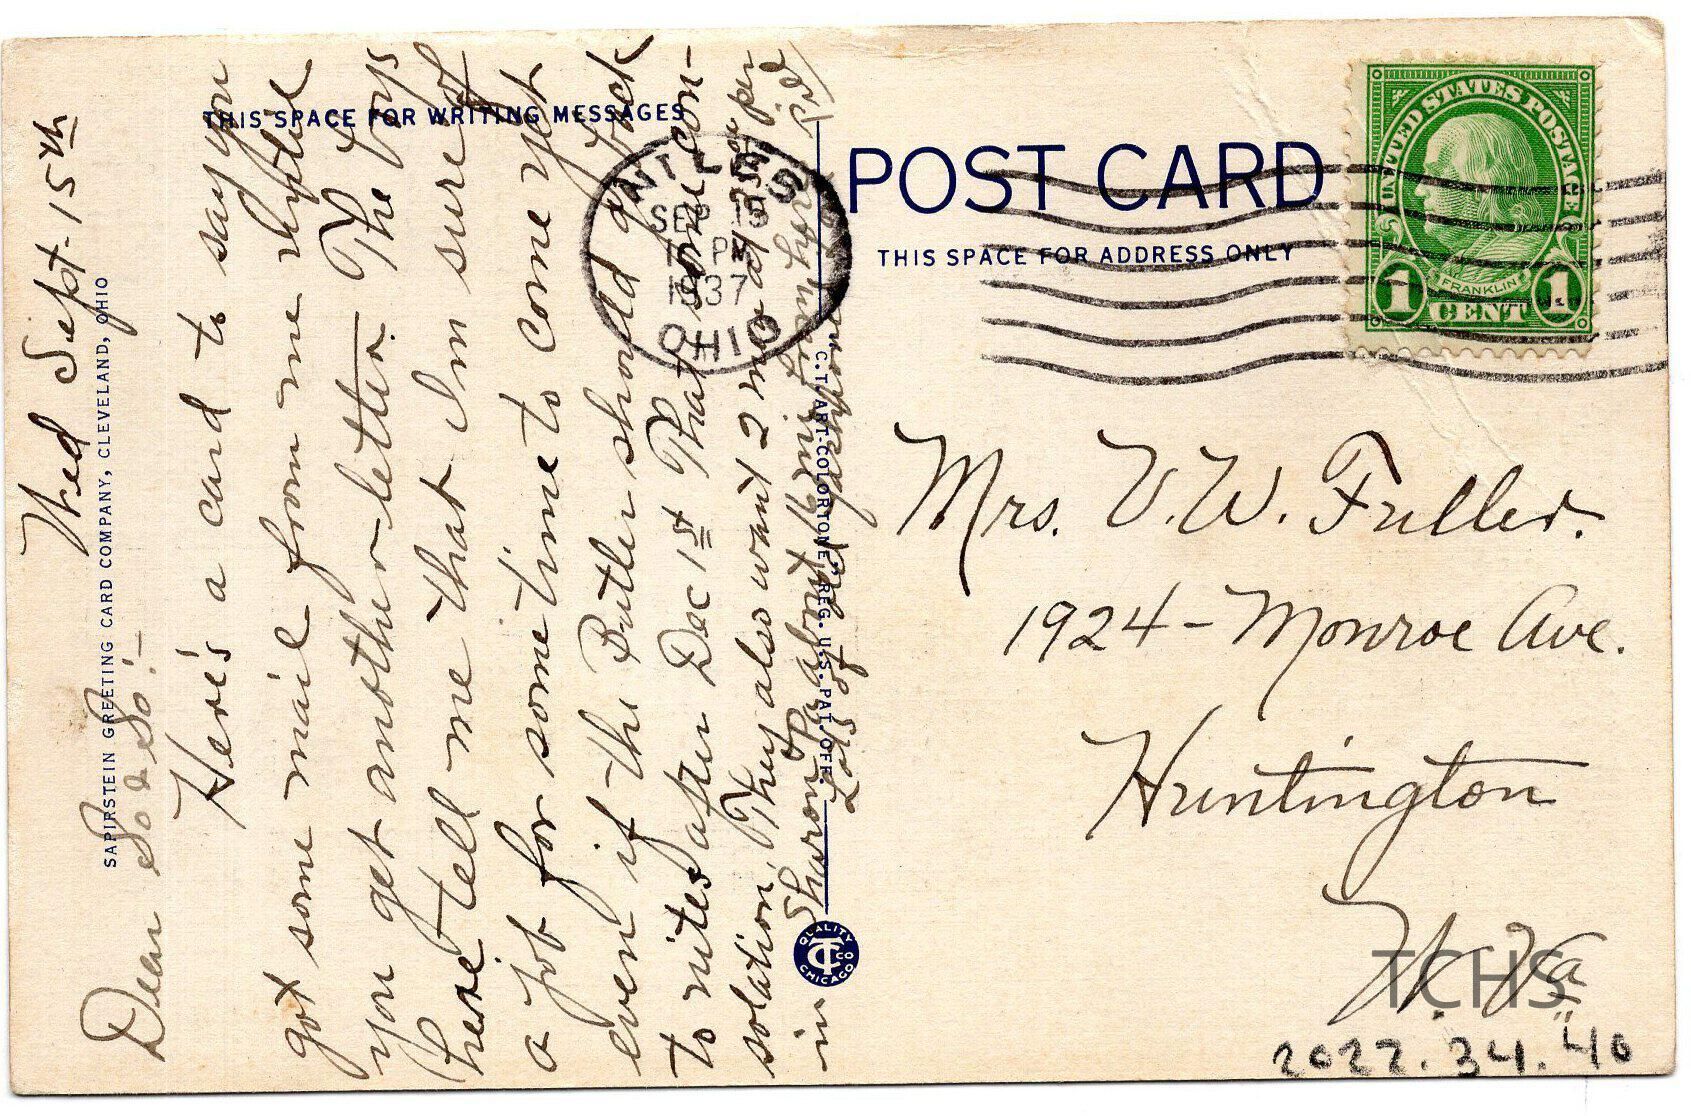 THIS SPACE FOR WRITING MESSAGES
POST CARD
THIS SPACE FOR ADDRESS ONLY
UNITED STATES POSTAGE
FRANKLIN
1 CENT 1
NILES
SEP 15
PM
1937
OHIO
SAPIRSTEIN GREETING CARD COMPANY, CLEVELAND, OHIO
"C.T. ART-COLORTONE" REG. U.S. PAT. OFF.
QUALITY
CT CO
CHICAGO
Wed Sept. 15th
Dear So & So:-
Here's a card to say you
got some mail from me until
you get another letter. The boys
here tell me that I'm sure of
a job for some time to come yet
even if the Butler should go back
to nites after Dec 1st That some con-
solation. They also want 2 men at 35¢ per
in Sharon Pa about
Lots of
Mrs. V. W. Fuller.
1924 - Monroe Ave.
Huntington
W. Va
TCHS
2022.34.40